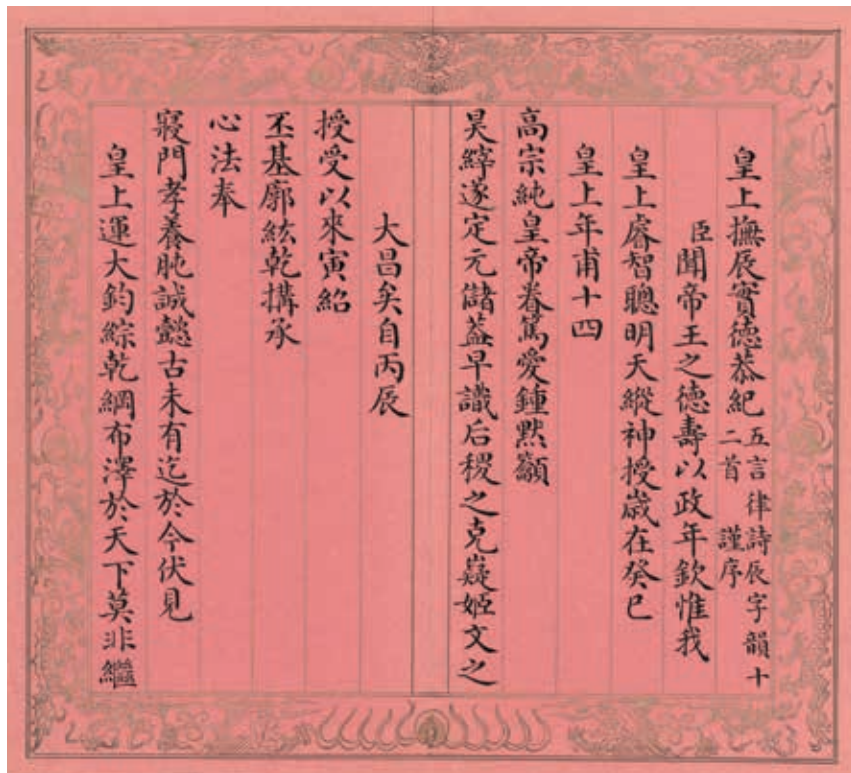 皇上撫辰實德恭紀五言律詩辰字韻十二首謹序
臣聞帝王之德壽以政年欽惟我
皇上睿智聰明天縱神授歲在癸巳
皇上年甫十四
高宗純皇帝眷篤愛鍾默籲
昊縡遂定元儲葢早識后稷之克嶷姬文之
大昌矣自丙辰
授受以來寅紹
丕基廓紘乾搆承
心法奉
寢門孝養肫誠懿古未有迄於今伏見
皇上運大鈞綜乾綱布澤於天下莫非繼